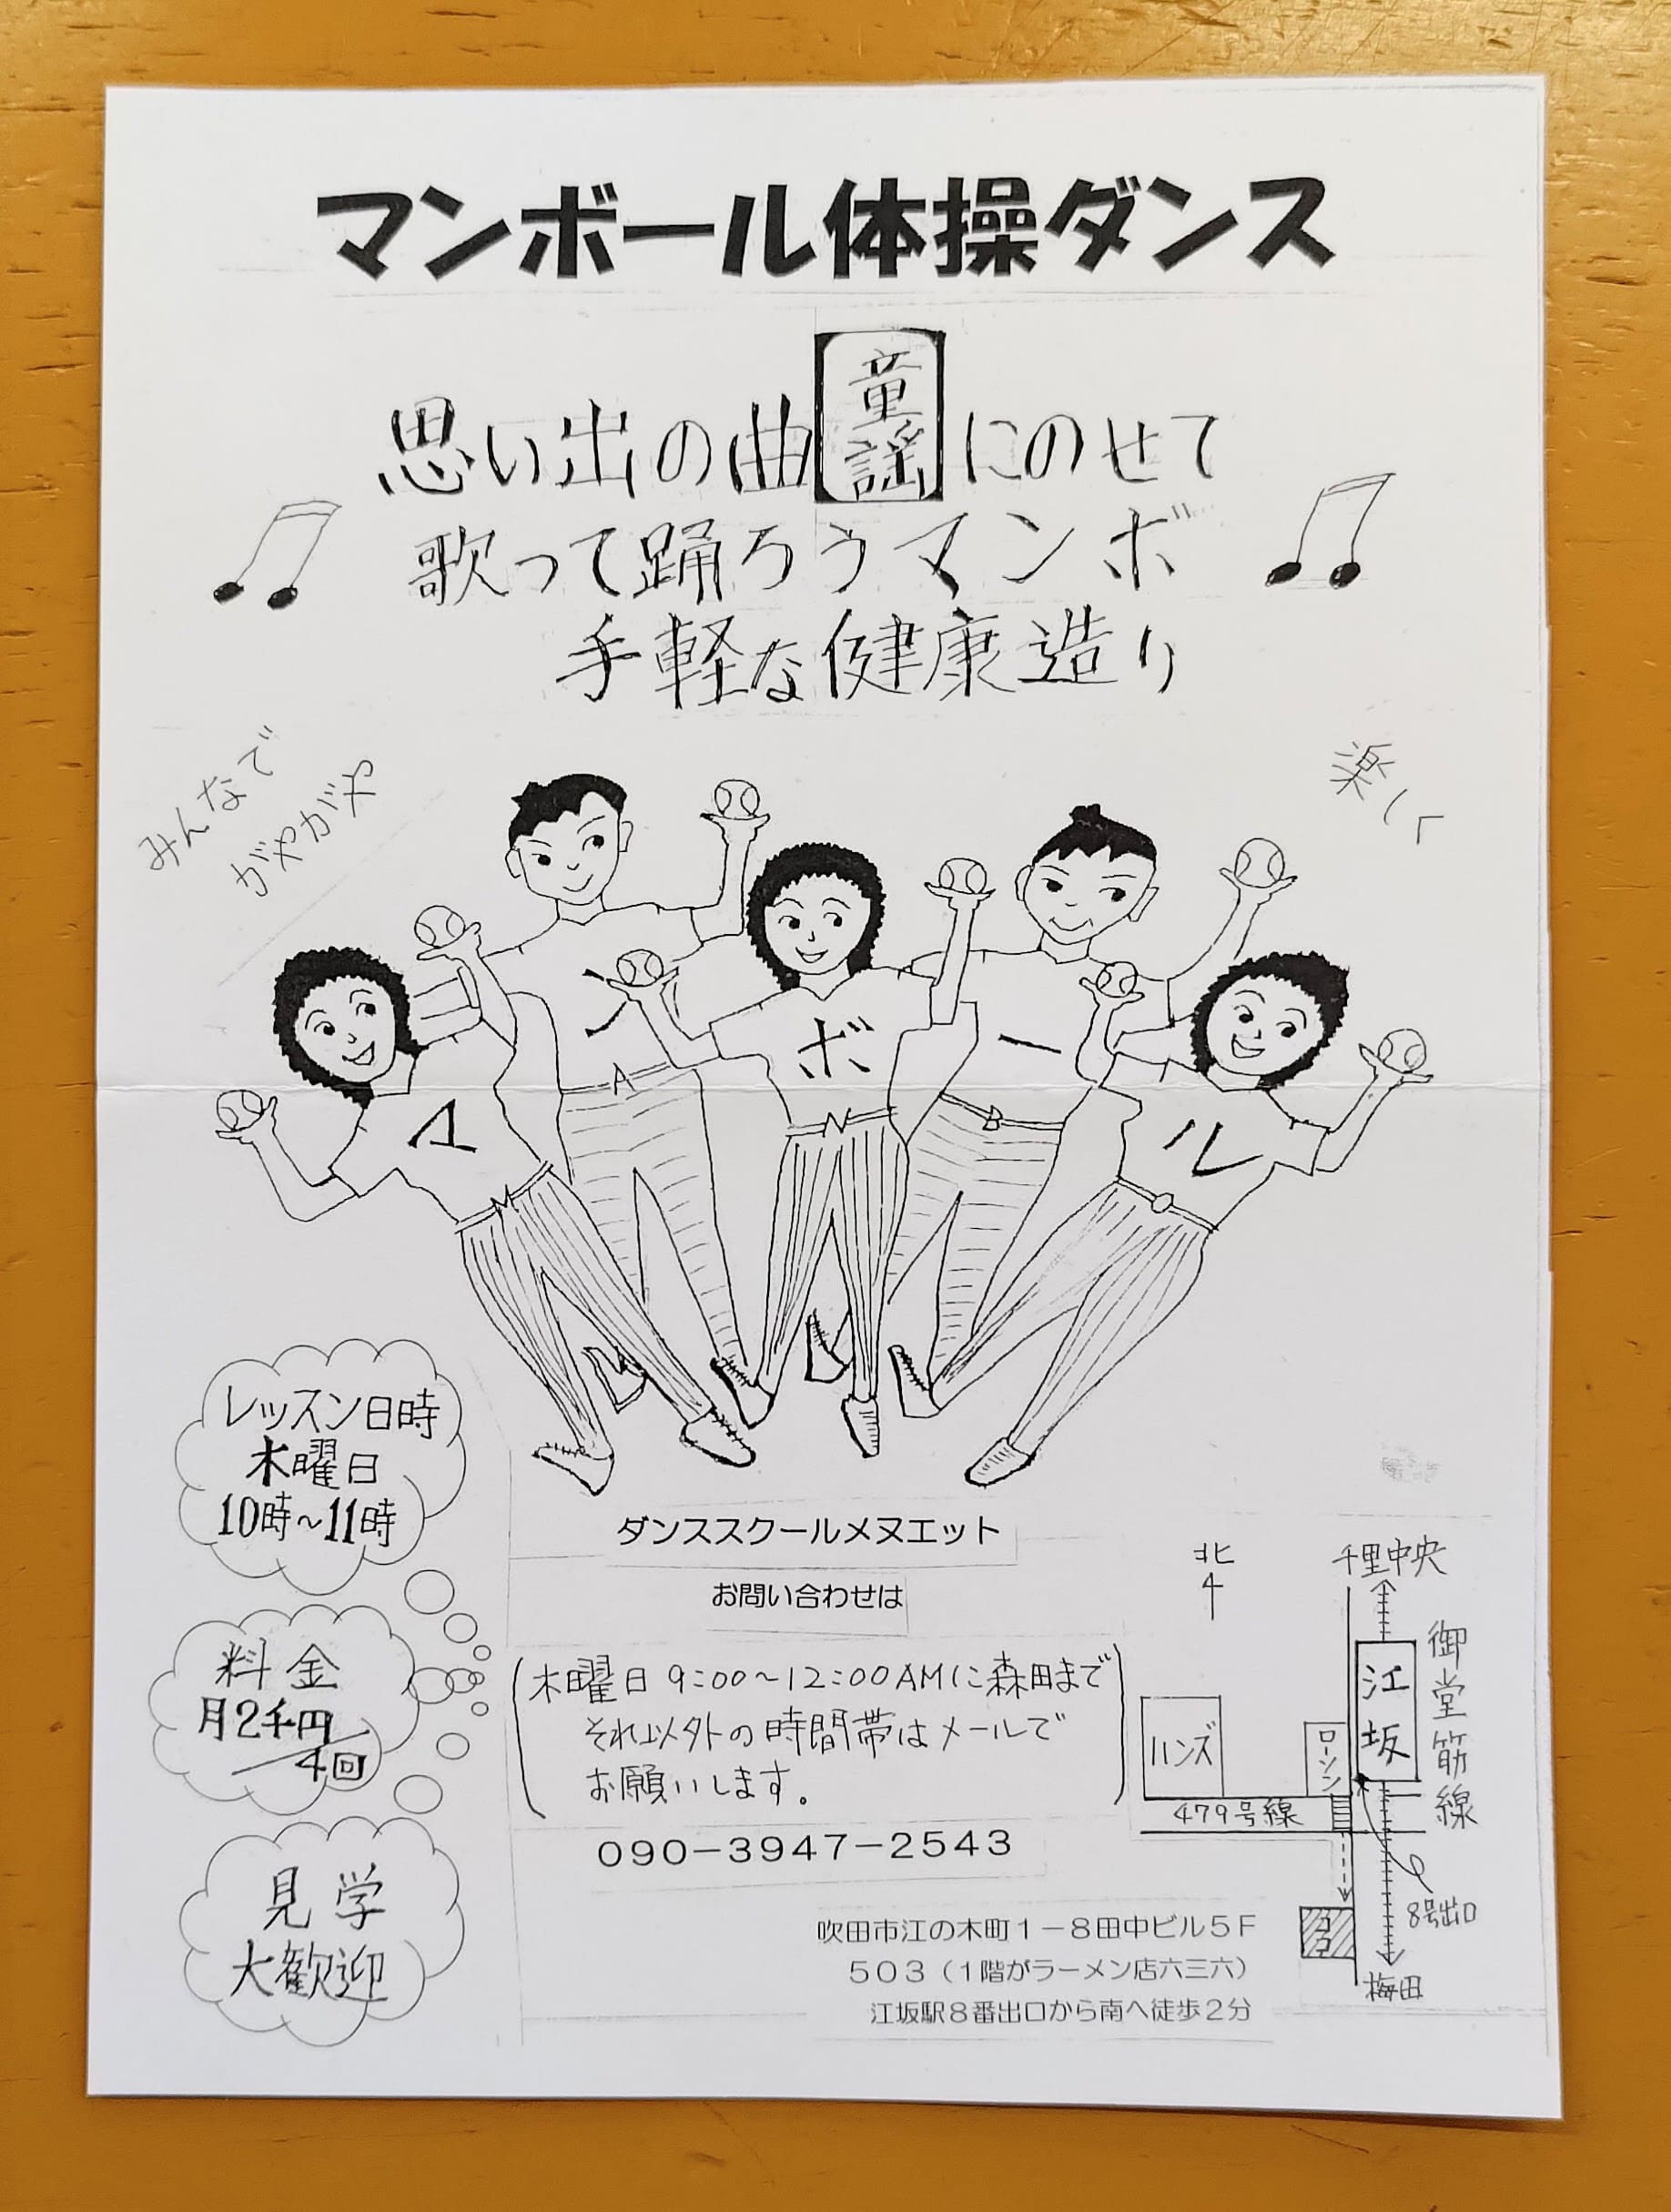 マンボール体操ダンス
思い出の曲童謡にのせて
歌って踊ろうマンボ
手軽な健康造り
みんなで
がやがや
楽しく
マ
ン
ボ
ー
ル
M
A
N
B
レッスン日時
木曜日
10時~11時
料金
月2千円
/4回
見学
大歓迎
ダンススクールメヌエット
お問い合わせは
(木曜日 9:00~12:00AMに森田まで
それ以外の時間帯はメールで
お願いします。)
090-3947-2543
吹田市江の木町1-8田中ビル5F
503(1階がラーメン店六三六)
江坂駅8番出口から南へ徒歩2分
北
千里中央
御堂筋線
江坂
ハンズ
ローソン
479号線
8号出口
ココ
梅田